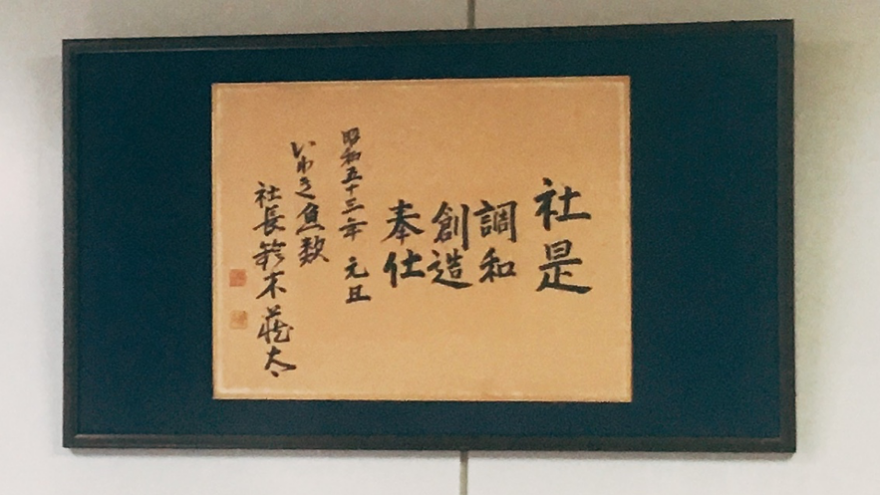 社是
調和
創造
奉仕
昭和五十三年 元旦
いわき魚類
社長 鈴木 荘太